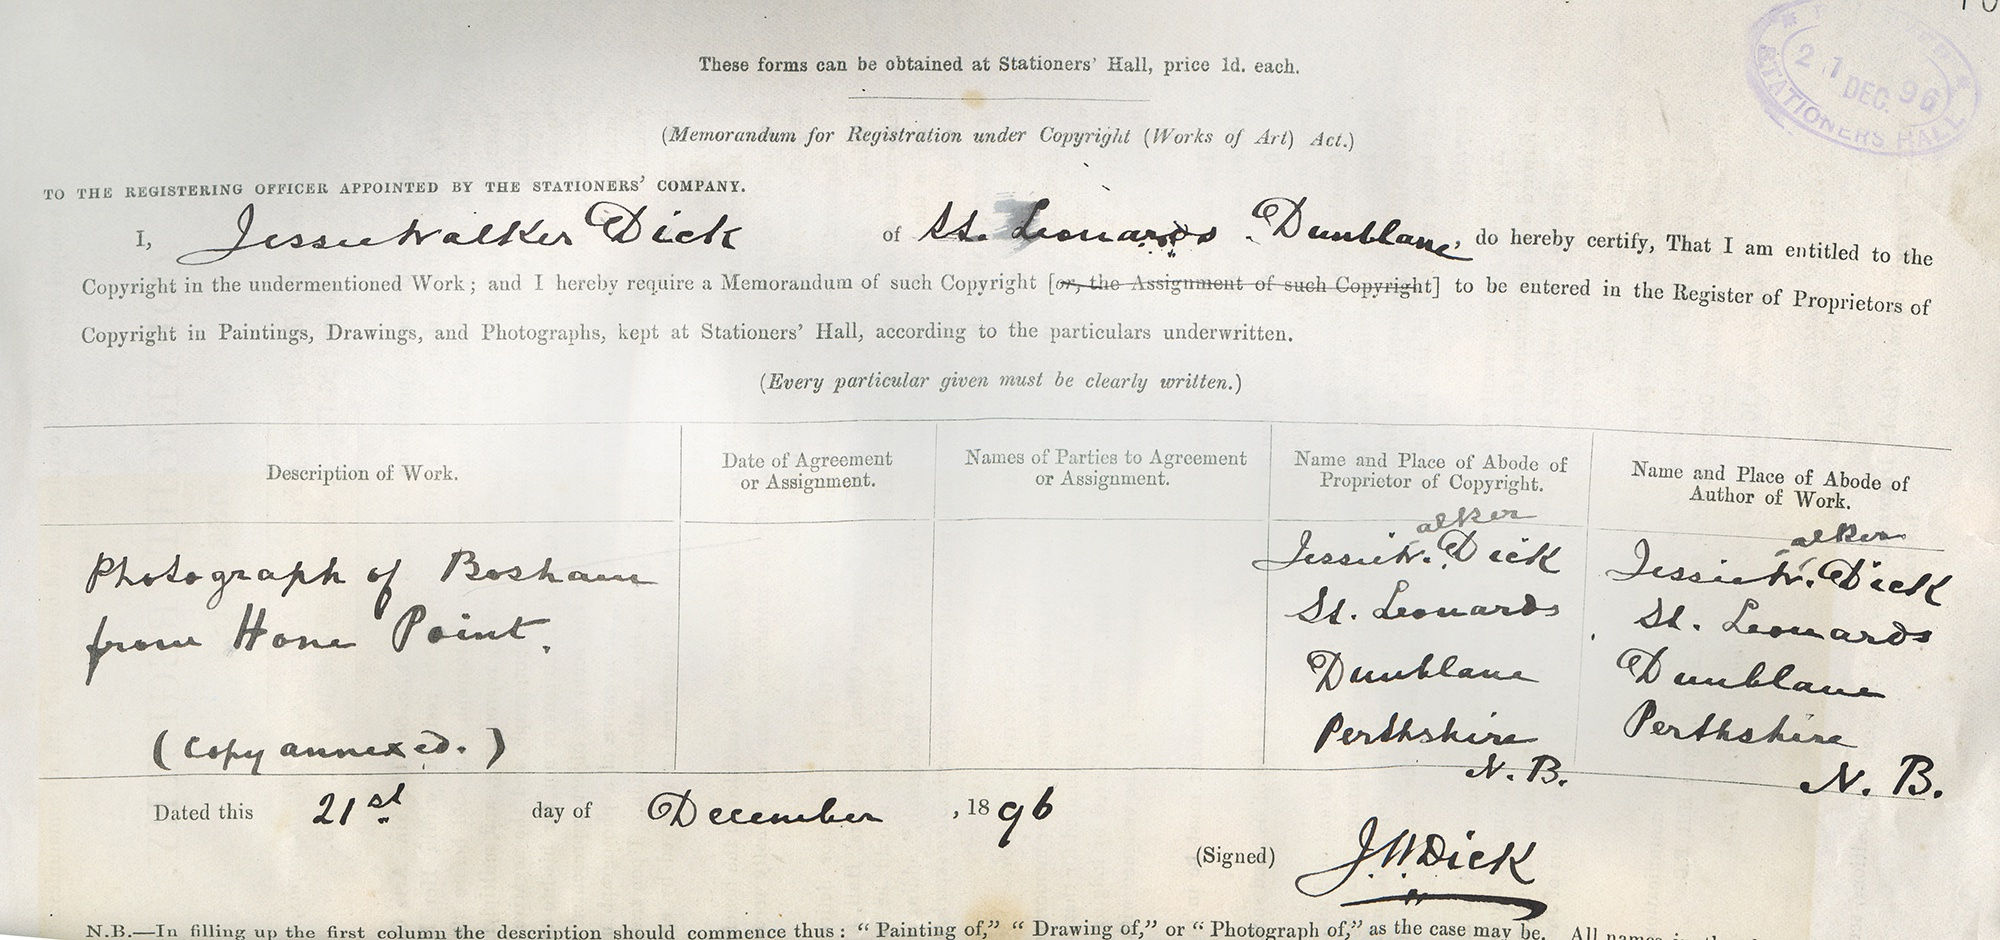 These forms can be obtained at Stationers' Hall, price 1d. each.
STATIONERS HALL
21 DEC. 96
(Memorandum for Registration under Copyright (Works of Art) Act.)
TO THE REGISTERING OFFICER APPOINTED BY THE STATIONERS' COMPANY.
I, Jessie Walker Dick of St. Leonards Dunblane, do hereby certify, That I am entitled to the
Copyright in the undermentioned Work; and I hereby require a Memorandum of such Copyright [or, the Assignment of such Copyright] to be entered in the Register of Proprietors of
Copyright in Paintings, Drawings, and Photographs, kept at Stationers' Hall, according to the particulars underwritten.
(Every particular given must be clearly written.)
Description of Work.
Date of Agreement
or Assignment.
Names of Parties to Agreement
or Assignment.
Name and Place of Abode of
Proprietor of Copyright.
Name and Place of Abode of
Author of Work.
Photograph of Bosham
from Hone Point.
(Copy annexed.)
alker
Jessie W. Dick
St. Leonards
Dunblane
Perthshire
N. B.
alker
Jessie W. Dick
St. Leonards
Dunblane
Perthshire
N. B.
Dated this 21st day of December, 1896
(Signed) J. W. Dick
N.B.—In filling up the first column the description should commence thus: "Painting of," "Drawing of," or "Photograph of," as the case may be. All names in the